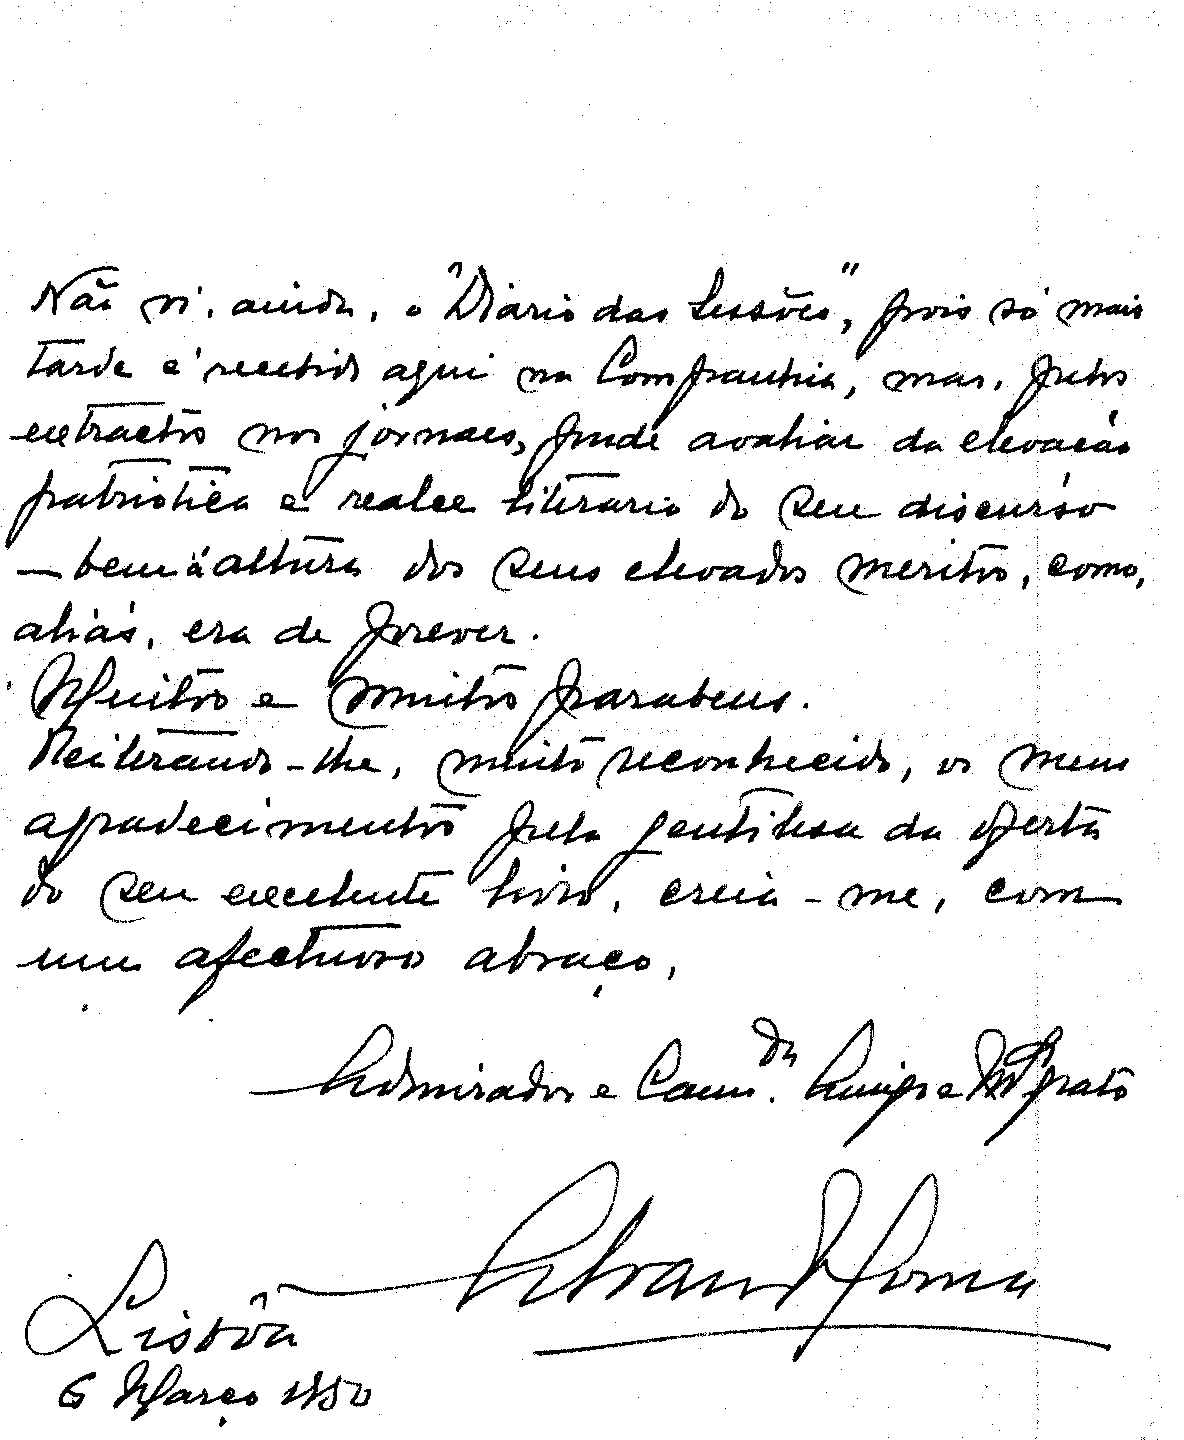 Não vi, ainda, o "Diario das Sessões", pois só mais
tarde é recebido aqui na Companhia, mas, pelos
extractos nos jornaes, pude avaliar da elevação
patriotica e realce literario do seu discurso
— bem á altura dos seus elevados meritos, como,
aliás, era de prever.
Muitos e muitos parabens.
Reiterando-lhe, muito reconhecido, os meus
agradecimentos pela gentilesa da oferta
do seu excelente livro, creia-me, com
um afectuoso abraço,
Admirador e Cam.da Amigo e Mto grato
Lisbôa
6 Março 1950